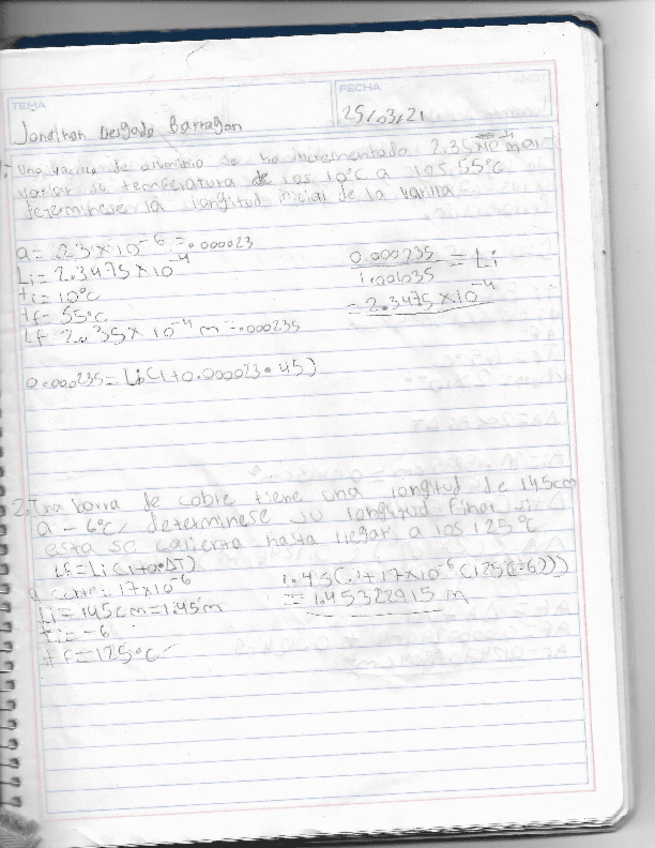 TEMA
FECHA
Jonathan Delgado Barragan
25/03/21
1.- Una varilla de aluminio se ha incrementado 2.35x10^-4 m al
variar su temperatura de los 10°C a los 55°C
determinese la longitud inicial de la varilla
a= 23x10^-6 = .000023
Li= 2.3475x10^-4
ti= 10°c
tf= 55°c
Lf= 2.35x10^-4 m = .000235
0.000235 = Li(1+0.000023•45)
0.000235 / 1.001035 = Li
= 2.3475x10^-4
2. Una barra de cobre tiene una longitud de 145cm
a -6°C, determinese su longitud final si
esta se calienta hasta llegar a los 125°C
Lf=Li(1+a•ΔT)
a cobre= 17x10^-6
Li= 145cm=1.45m
ti= -6
tf=125°c
1.45(1+17x10^-6(125(-6)))
= 1.45322915 m